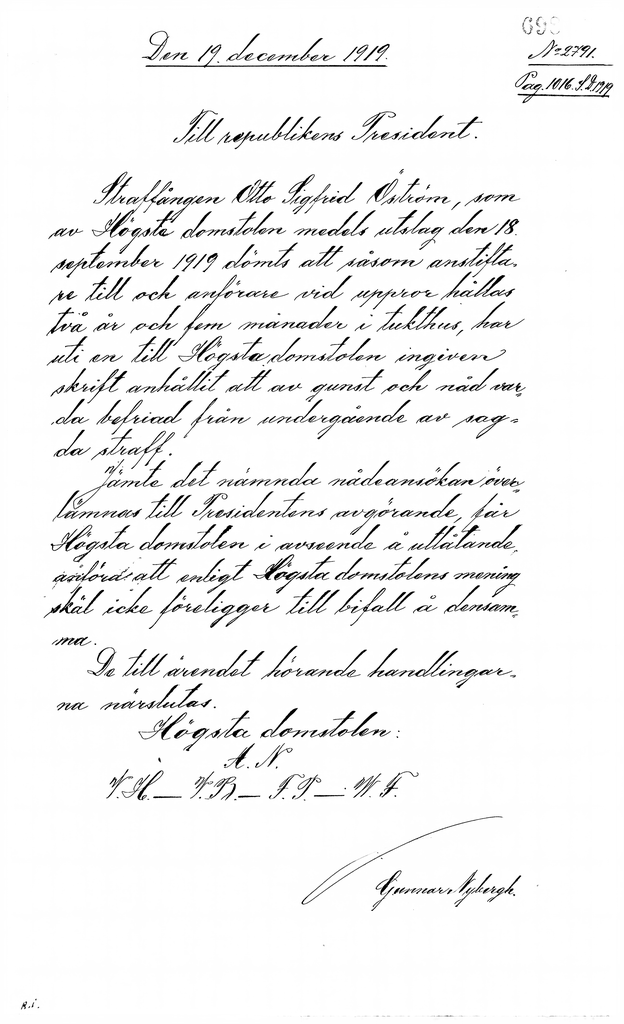 698
Den 19. december 1919.
No 2791.
Pag. 1016. S.D. 1919
Till republikens President.
Straffången Otto Sigfrid Öström, som
av Högsta domstolen medels utslag den 18.
september 1919 dömts att såsom anstifta-
re till och anförare vid uppror hållas
två år och fem månader i tukthus, har
uti en till Högsta domstolen ingiven
skrift anhållit att av gunst och nåd var-
da befriad från undergående av sag-
da straff.
Jämte det nämnda nådeansökan över-
lämnas till Presidentens avgörande, får
Högsta domstolen i avseende å utlåtande,
anföra att enligt Högsta domstolens mening
skäl icke föreligger till bifall å densam-
ma.
De till ärendet hörande handlingar-
na närslutas.
Högsta domstolen:
A. N.
V. H. — — F. P. — W. F.
Gunnar Nybergh.
R. i.